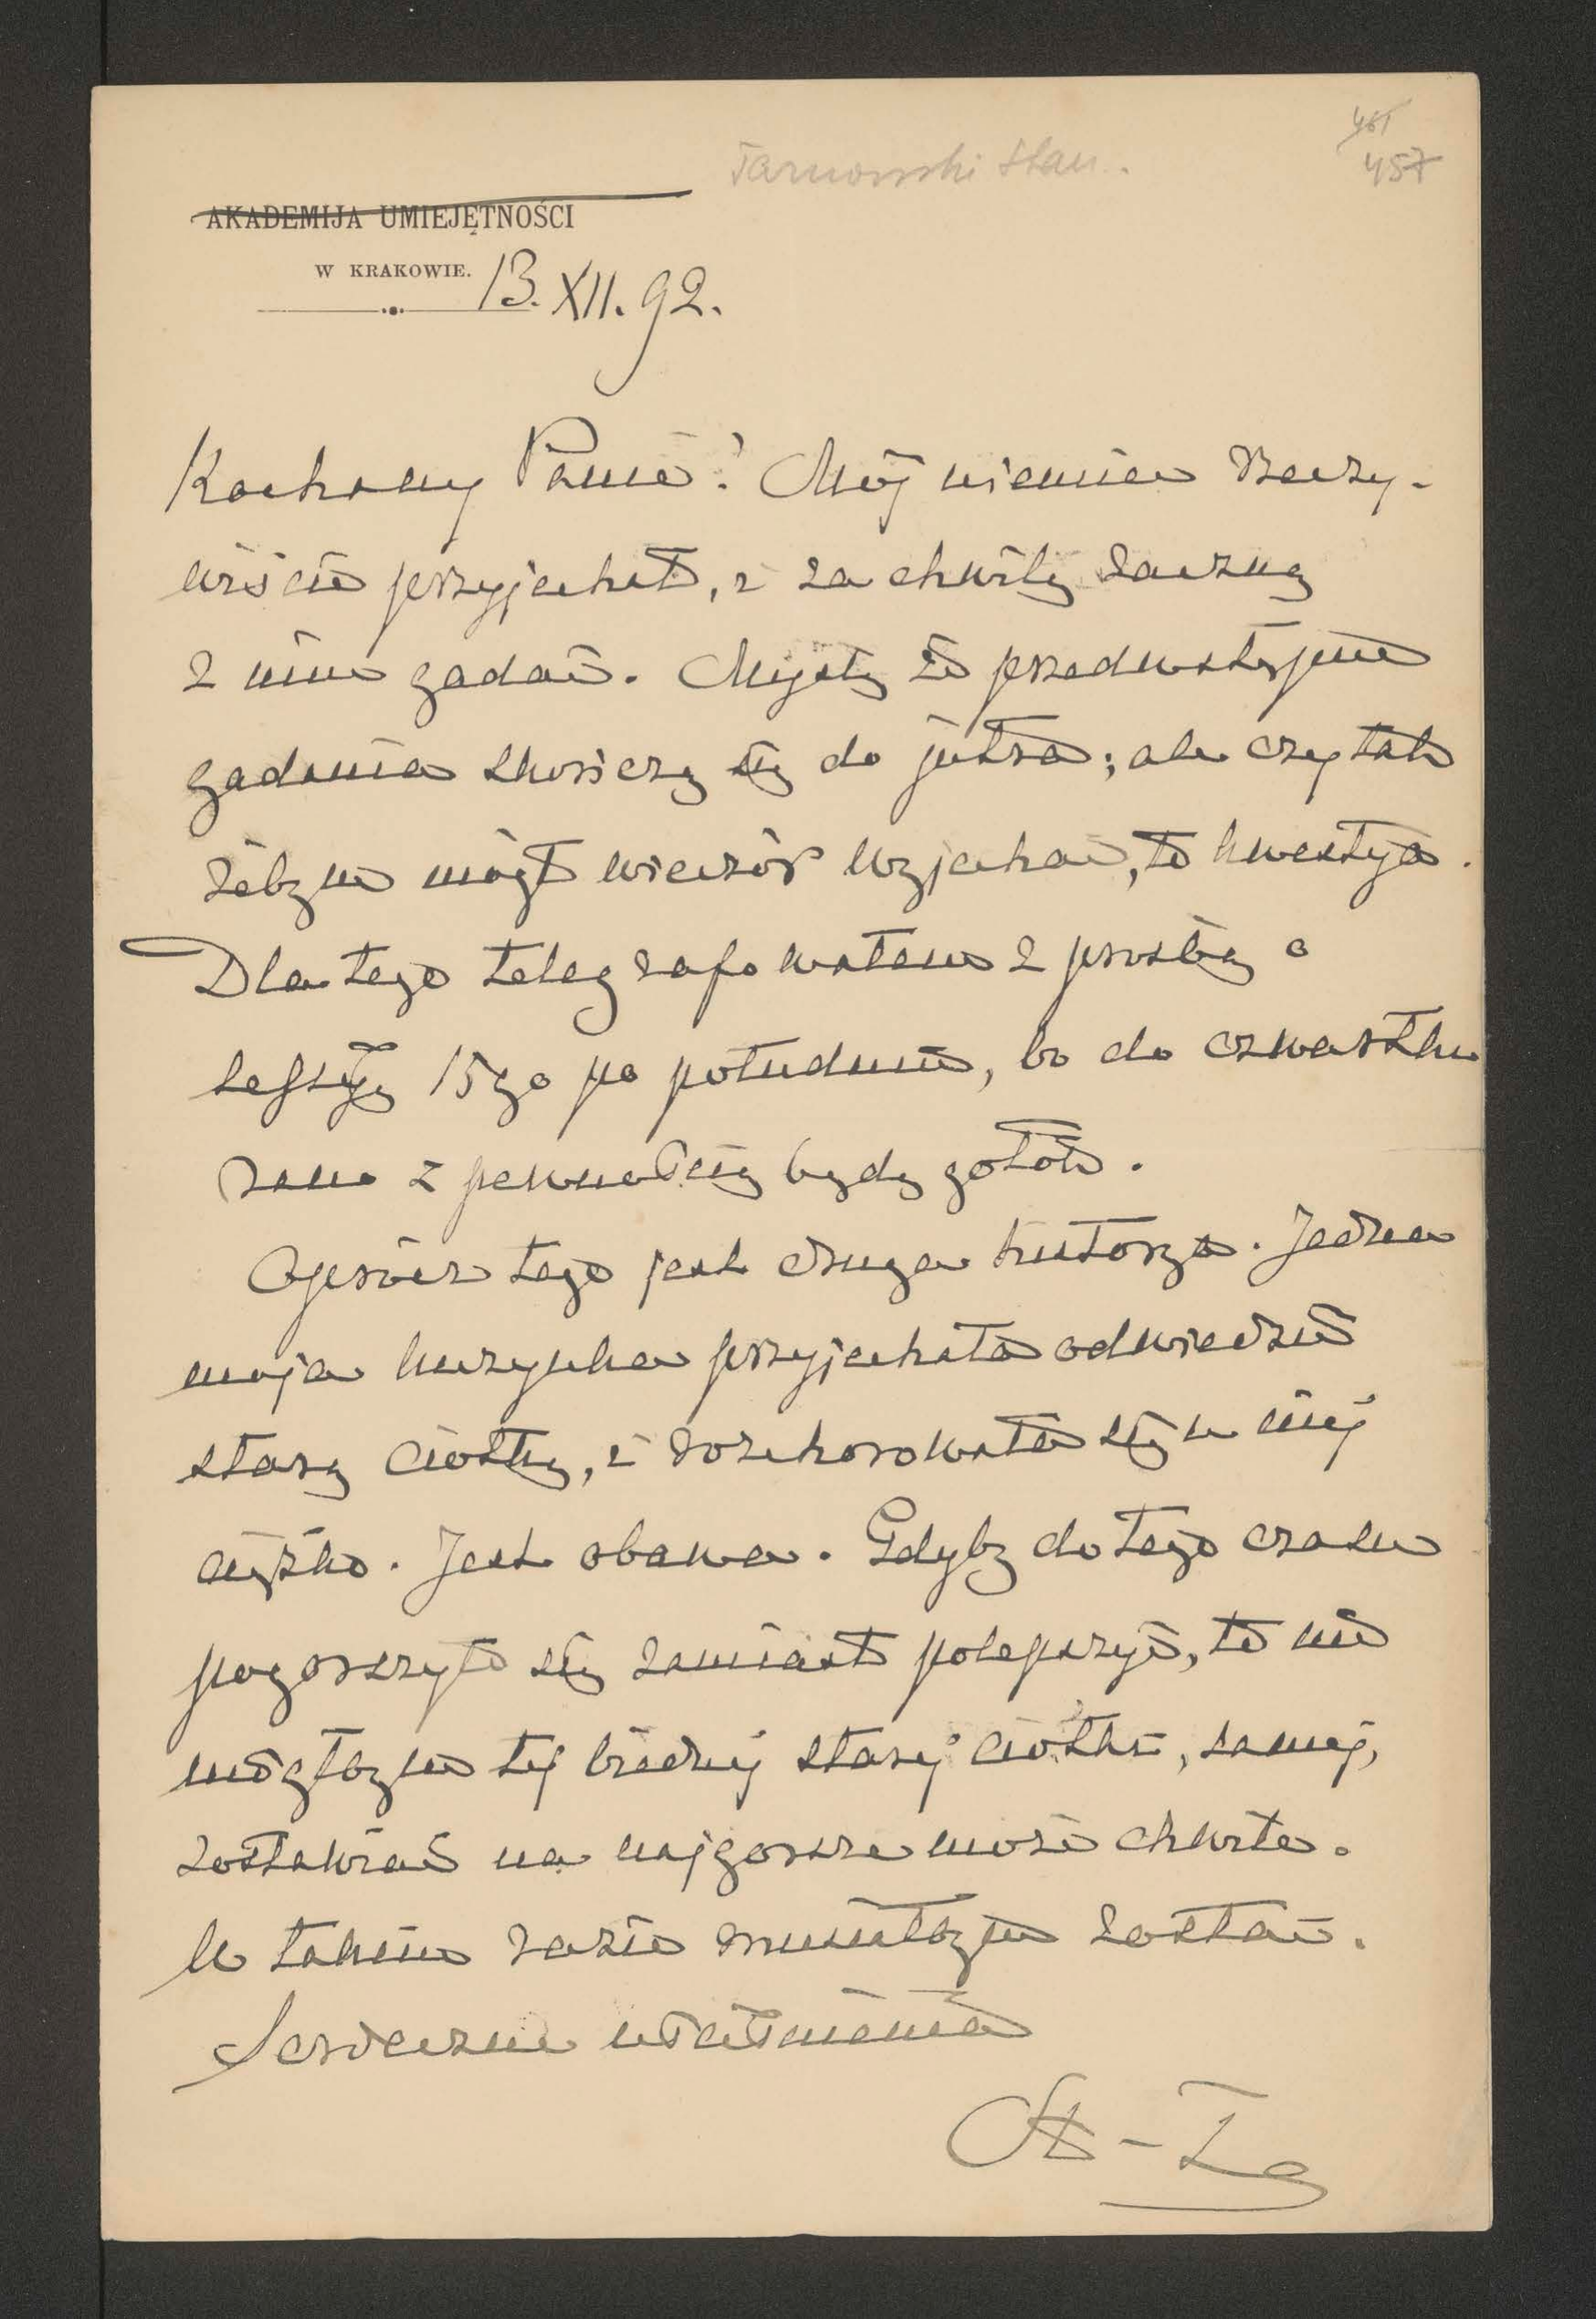 Tarnowski Stan.
461
457
AKADEMIJA UMIEJĘTNOŚCI
W KRAKOWIE. 13. XII. 92.
Kochany Panie! Mój niemiec rzeczy-
wiście przyjechał, i za chwilę zacznę
z nim gadać. Myślę że przedwstępne
gadania skończą się do jutra; ale czy tak
żebym mógł wieczór wyjechać, to kwestya.
Dla tego telegrafowałem z prośbą o
sessyę 15go po południu, bo do czwartku
rano z pewnością będę gotów.
Oprócz tego jest druga historya. Jedna
moja kuzynka przyjechała odwiedzić
starą ciotkę, i rozchorowała się u niej
ciężko. Jest obawa. Gdyby do tego czasu
pogorszyło się zamiast polepszyć, to nie
mógłbym tej biednej starej ciotki, samej,
zostawiać na najgorsze może chwile.
W takim razie musiałbym zostać.
Serdeczne uściśnienia
St-T